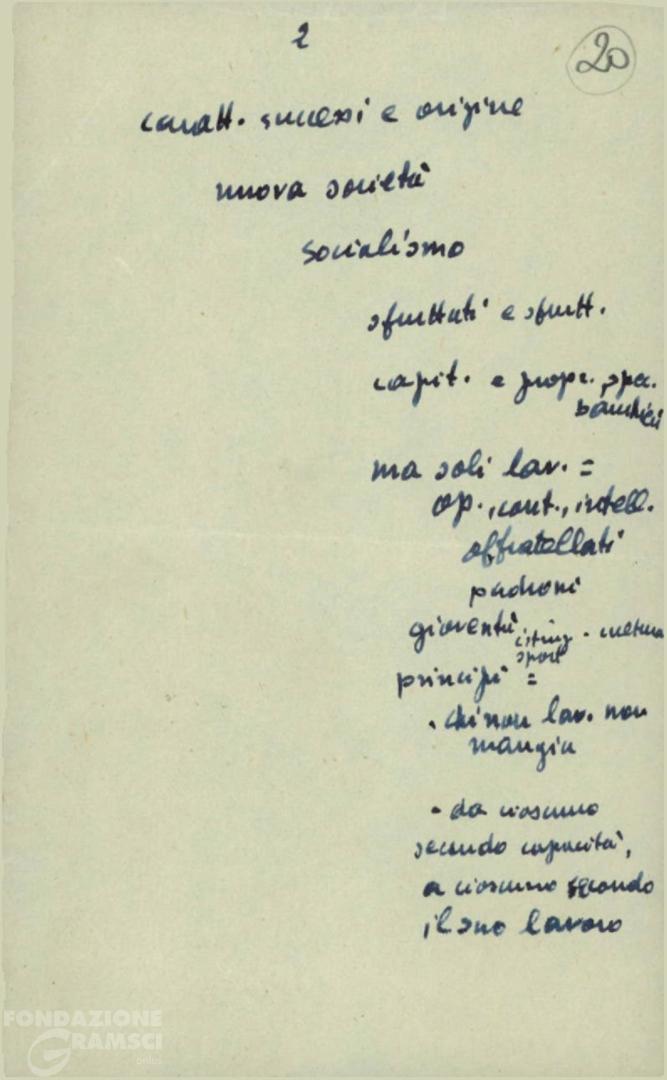 2
20
caratt. successi e origine
nuova società
socialismo
sfruttati e sfrutt.
capit. e propr., spec.
banchieri
ma soli lav. =
op., cont., intell.
affratellati
padroni
gioventù istruz. - cultura
sport
principi =
- chi non lav. non
mangia
- da ciascuno
secondo capacità,
a ciascuno secondo
il suo lavoro
FONDAZIONE
GRAMSCI
onlus